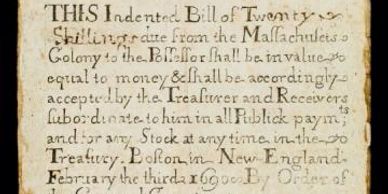 THIS Indented Bill of Twenty
Shillings due from the Massachusets
Colony to the Possessor shall be in value
equal to money & shall be accordingly
accepted by the Treasurer and Receivers
subordinate to him in all Publick paymts
and for any Stock at any time in the
Treasury. Boston in New England
February the third 1690. By Order of